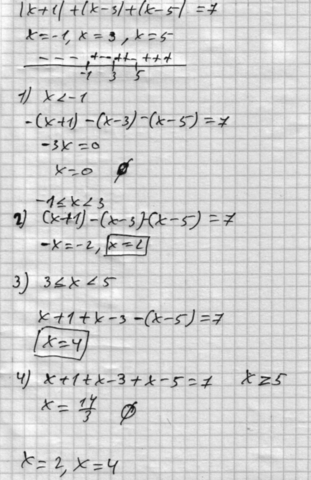 |x+1|+|x-3|+|x-5|=7
x=-1, x=3, x=5
- - - +-- ++- +++
-1 3 5
1) x<-1
-(x+1)-(x-3)-(x-5)=7
-3x=0
x=0 ∅
-1≤x<3
2) (x+1)-(x-3)-(x-5)=7
-x=-2, x=2
3) 3≤x<5
x+1+x-3-(x-5)=7
x=4
4) x+1+x-3+x-5=7 x≥5
x=14/3 ∅
x=2, x=4